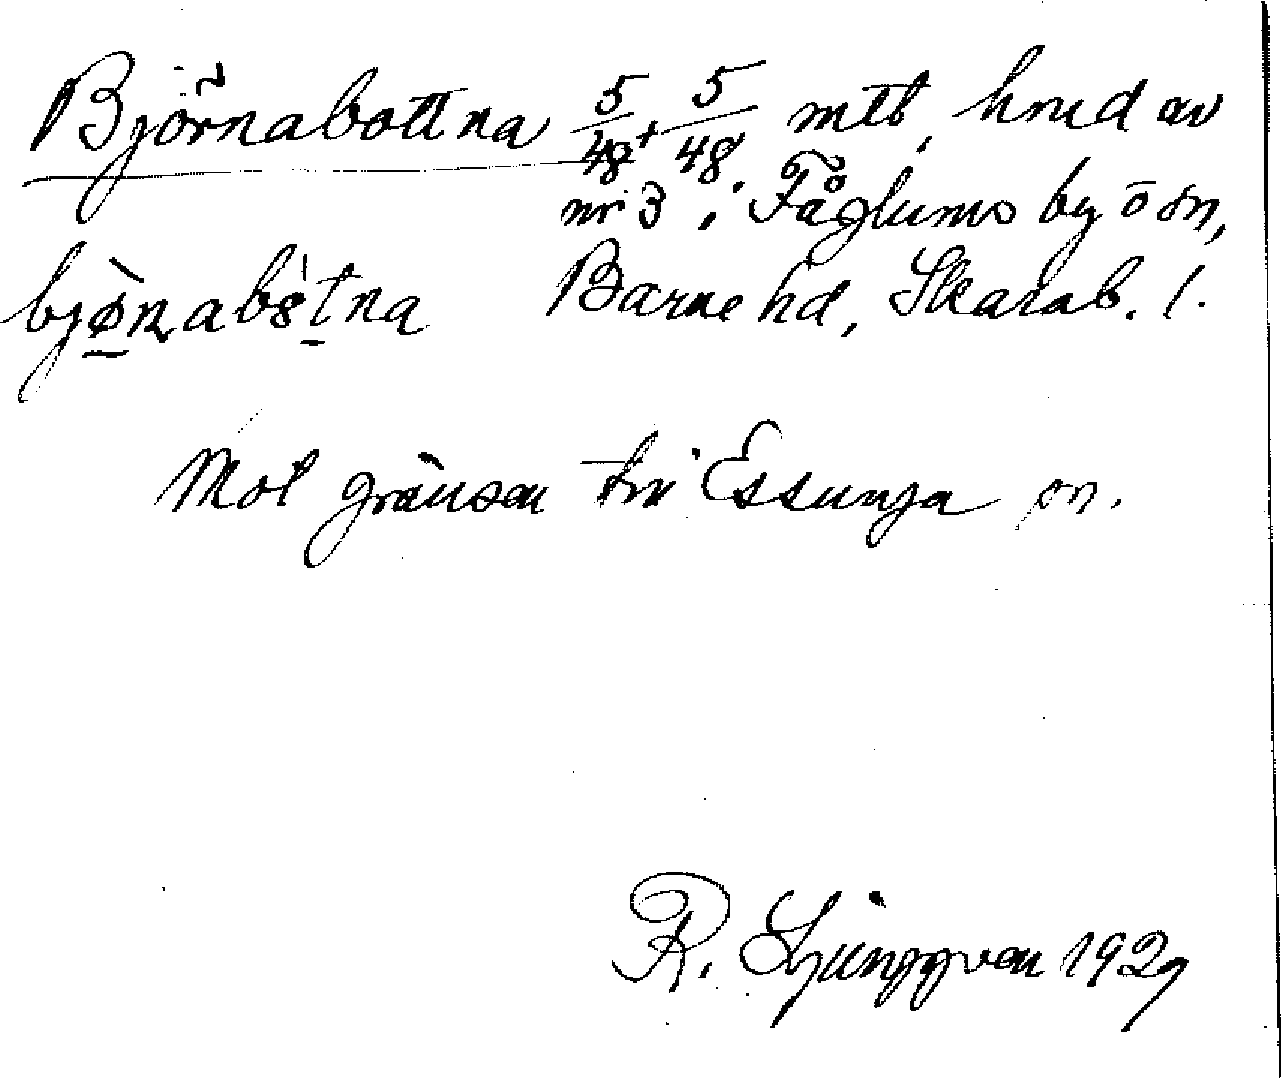 Björnabottna 5/48 + 5/48 mtl, hmd av
nr 3, Fåglums by o sn,
bjø̱ɳabo̊t̠na Barne hd, Skarab. l.
Mot gränsen till Essunga sn.
R. Ljunggren 1929